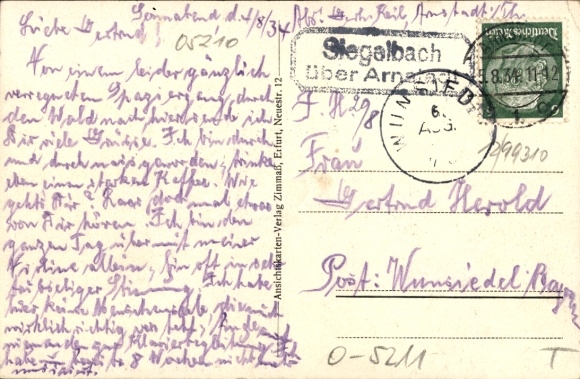 Sonnabend d. 4/8/34
Liebe Gertrud!
Von einem leider gänzlich
verregneten Spaziergang durch
den Wald nach hier sende ich
Dir viele Grüsse. Ich bin durch
und durch nass geworden, trinke
eben einen starken Kaffee. Wie
geht's Dir? Lass doch mal etwas
von Dir hören. Ich bin den
ganzen Tag über mit meiner
allein, bin oft in
Stimmung. Ich habe
hier keine Menschenseele, die mich
wirklich richtig versteht,
niemanden zur Klavierbegleitung. Ich
habe 8 Wochen nicht mehr
musiziert.
05210
Abs: Keil, Arnstadt i/Th.
Siegelbach
über Arnstadt
Deutsches Reich
5.8.34. 11-12
WUNSIEDEL
6.
AUG.
F H 29/8
1299310
Frau
Gertrud Herold
Post: Wunsiedel Bayern
Ansichtskarten-Verlag Zimmaß, Erfurt, Neuestr. 12
0-5211
T